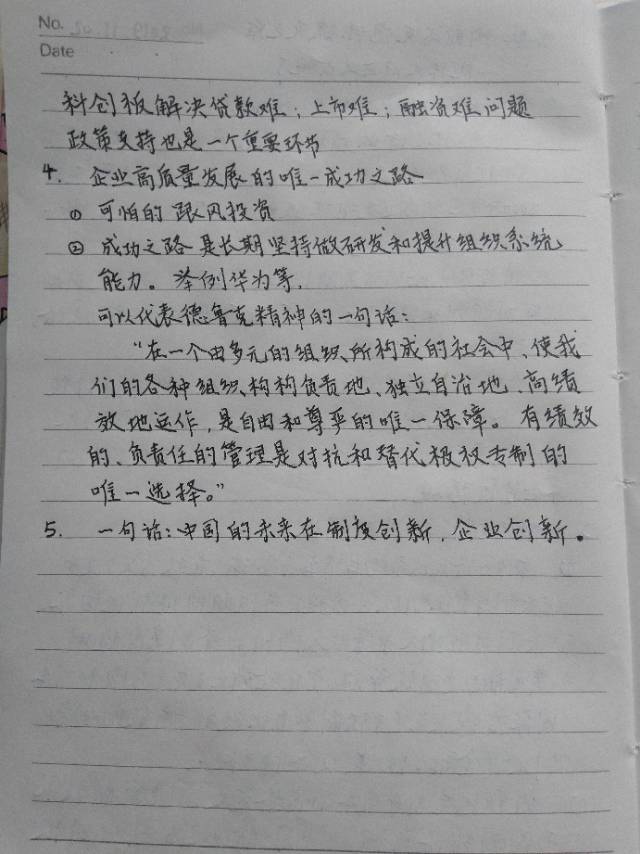 No.
Date
科创板解决贷款难；上市难；融资难问题
政策支持也是一个重要环节
4. 企业高质量发展的唯一成功之路
① 可怕的跟风投资
② 成功之路是长期坚持做研发和提升组织系统
能力。举例华为等.
可以代表德鲁克精神的一句话：
“在一个由多元的组织、所构成的社会中、使我
们的各种组织、构构负责地、独立自治地、高绩
效地运作，是自由和尊严的唯一保障。有绩效
的、负责任的管理是对抗和替代极权专制的
唯一选择。”
5. 一句话：中国的未来在制度创新，企业创新。